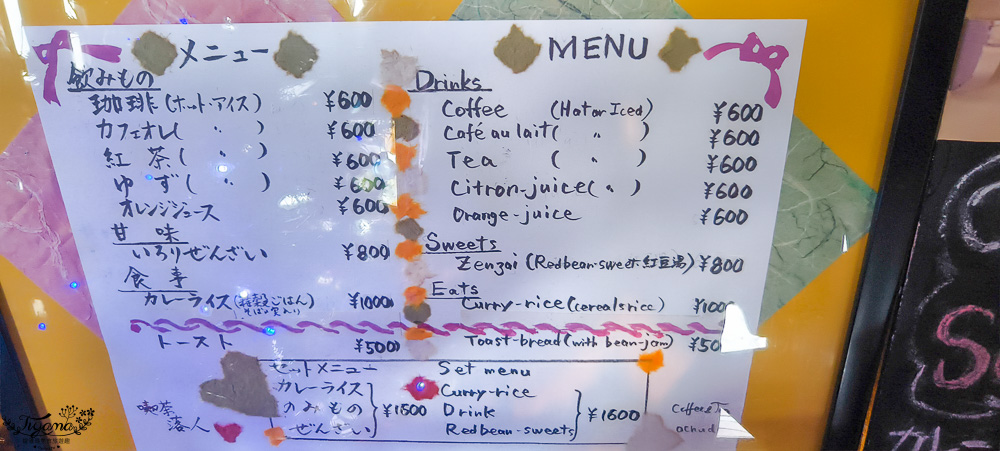 メニュー
飲みもの
珈琲(ホット・アイス) ¥600
カフェオレ( 〃 ) ¥600
紅茶( 〃 ) ¥600
ゆず( 〃 ) ¥600
オレンジジュース ¥600
甘味
いろりぜんざい ¥800
食事
カレーライス(雑穀ごはん そばの実入り) ¥1000
トースト ¥500
MENU
Drinks
Coffee (Hot or Iced) ¥600
Café au lait( 〃 ) ¥600
Tea ( 〃 ) ¥600
Citron-juice( 〃 ) ¥600
Orange-juice ¥600
Sweets
Zenzai (Redbean-sweet・紅豆湯) ¥800
Eats
Curry-rice (cereals rice) ¥1000
Toast-bread (with bean-jam) ¥50
セットメニュー
カレーライス
のみもの
ぜんざい
¥1600
Set menu
Curry-rice
Drink
Redbean-sweets
¥1600
喫茶
落人
Coffee & T
ochud
Tiyama